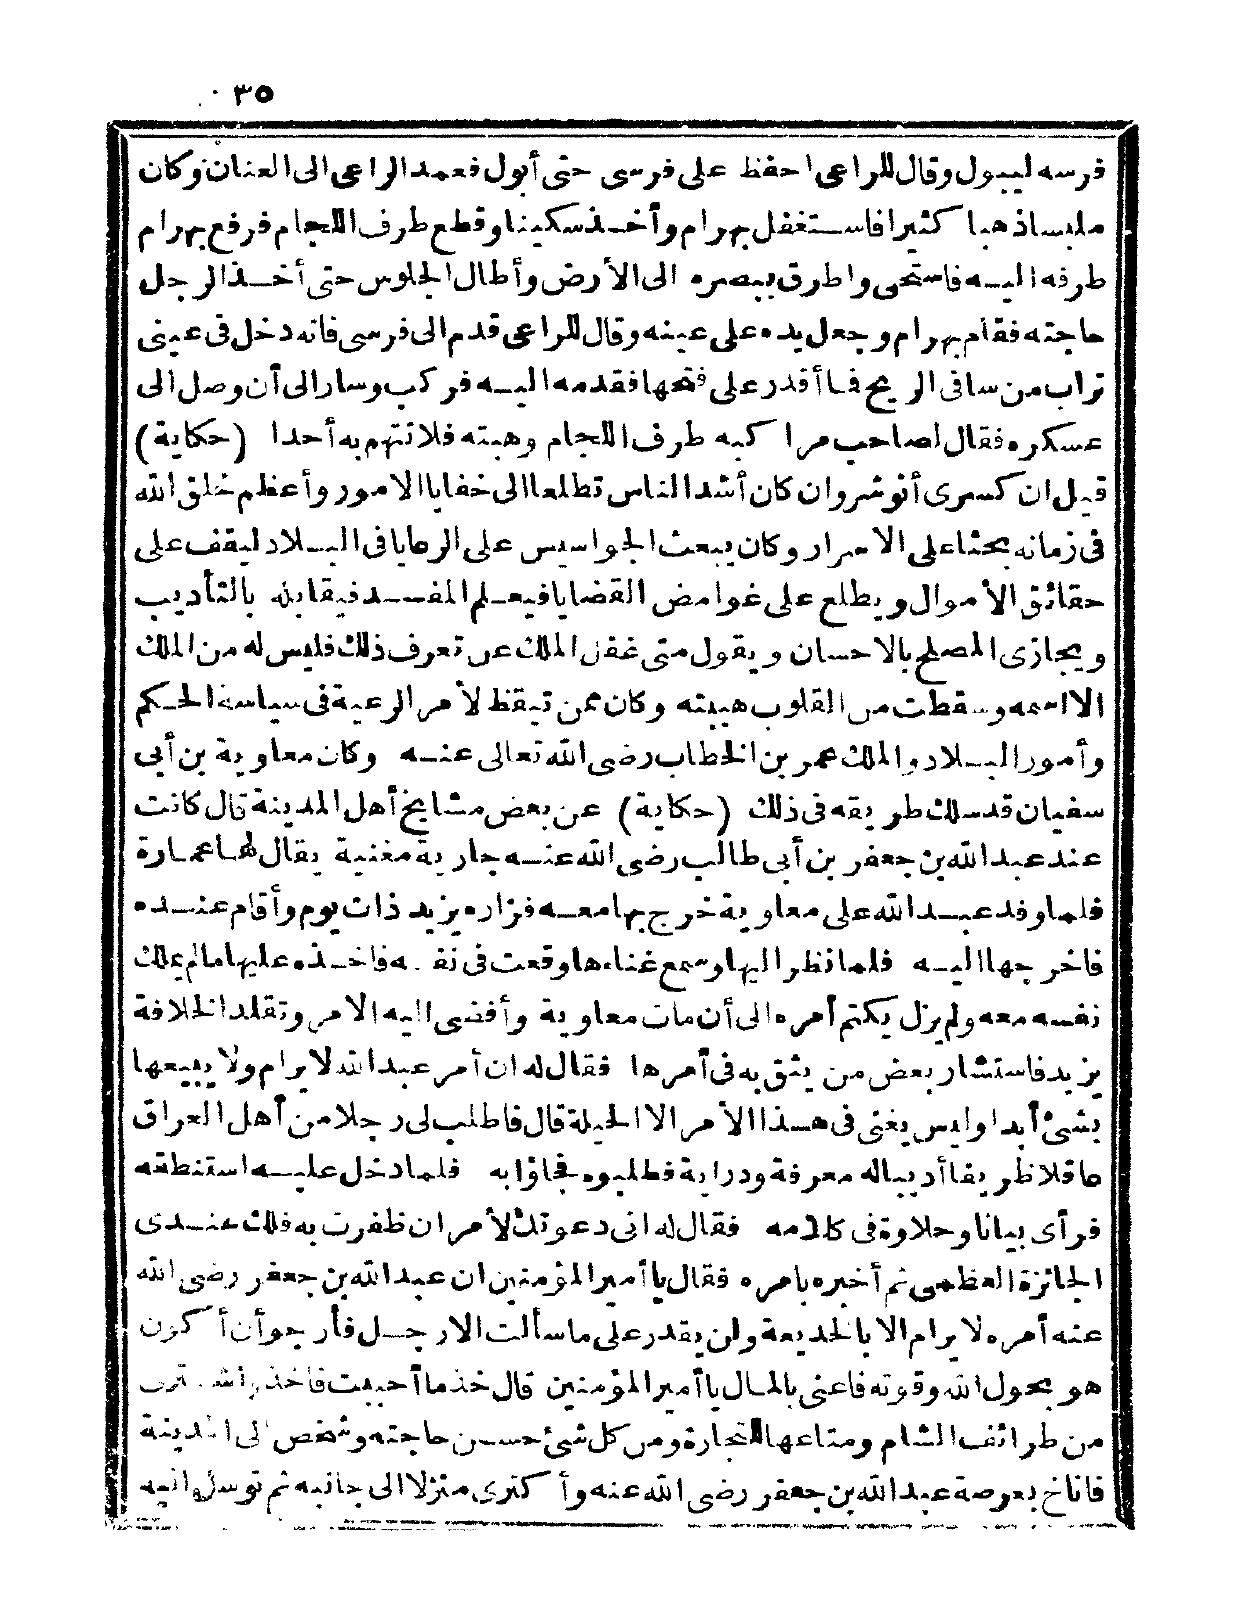 ٣٥
فرسه ليبول وقال للراعى احفظ على فرسى حتى أبول فعمد الراعى الى العنان وكان
ملبسا ذهبا كثيرا فاستغفل بهرام وأخذ سكينا وقطع طرف اللجام فرفع بهرام
طرفه اليه فاستحى واطرق ببصره الى الأرض وأطال الجلوس حتى أخذ الرجل
حاجته فقام بهرام وجعل يده على عينه وقال للراعى قدم الى فرسى فانه دخل فى عينى
تراب من سافى الريح فما أقدر على فتحها فقدمه اليه فركب وسار الى أن وصل الى
عسكره فقال لصاحب مراكبه طرف اللجام وهبته فلا تتهم به أحدا (حكاية)
قيل ان كسرى أنوشروان كان أشد الناس تطلعا الى خفايا الامور وأعظم خلق الله
فى زمانه بحثا على الاسرار وكان يبعث الجواسيس على الرعايا فى البلاد ليقف على
حقائق الأموال ويطلع على غوامض القضايا فيعلم المفسد فيقابله بالتأديب
ويجازى المصلح بالاحسان ويقول متى غفل الملك عن تعرف ذلك فليس له من الملك
الا اسمه وسقطت من القلوب هيبته وكان ممن تيقظ لأمر الرعية فى سياسة الحكم
وأمور البلاد والملك عمر بن الخطاب رضى الله تعالى عنه وكان معاوية بن أبى
سفيان قد سلك طريقه فى ذلك (حكاية) عن بعض مشايخ أهل المدينة قال كانت
عند عبد الله بن جعفر بن أبى طالب رضى الله عنه جارية مغنية يقال لها عمارة
فلما وفد عبد الله على معاوية خرج بها معه فزاره يزيد ذات يوم وأقام عنده
فاخرجها اليه فلما نظر اليها وسمع غناءها وقعت فى نفسه فاخذه عليها مالم يملك
نفسه معه ولم يزل يكتم أمره الى أن مات معاوية وأفضى اليه الامر وتقلد الخلافة
يزيد فاستشار بعض من يثق به فى أمرها فقال له ان أمر عبد الله لا يرام ولا يبيعها
بشئ أبدا وليس يغنى فى هذا الأمر الا الحيلة قال فاطلب لى رجلا من أهل العراق
عاقلا ظريفا أديبا له معرفة ودراية فطلبوه فجاؤا به فلما دخل عليه استنطقه
فرأى بيانا وحلاوة فى كلامه فقال له انى دعوتك لأمر ان ظفرت به فلك عندى
الجائزة العظمى ثم أخبره بامره فقال يا أمير المؤمنين ان عبد الله بن جعفر رضى الله
عنه أمره لا يرام الا بالخديعة ولن يقدر على ما سألت الا رجل فأرجو أن أكون
هو بحول الله وقوته فاعنى بالمال يا أمير المؤمنين قال خذ ما أحببت فاخذ واشترى
من طرائف الشام ومتاعها للتجارة ومن كل شئ حسن حاجته وشخص الى المدينة
فاناخ بعرصة عبد الله بن جعفر رضى الله عنه وأكترى منزلا الى جانبه ثم توسل اليه